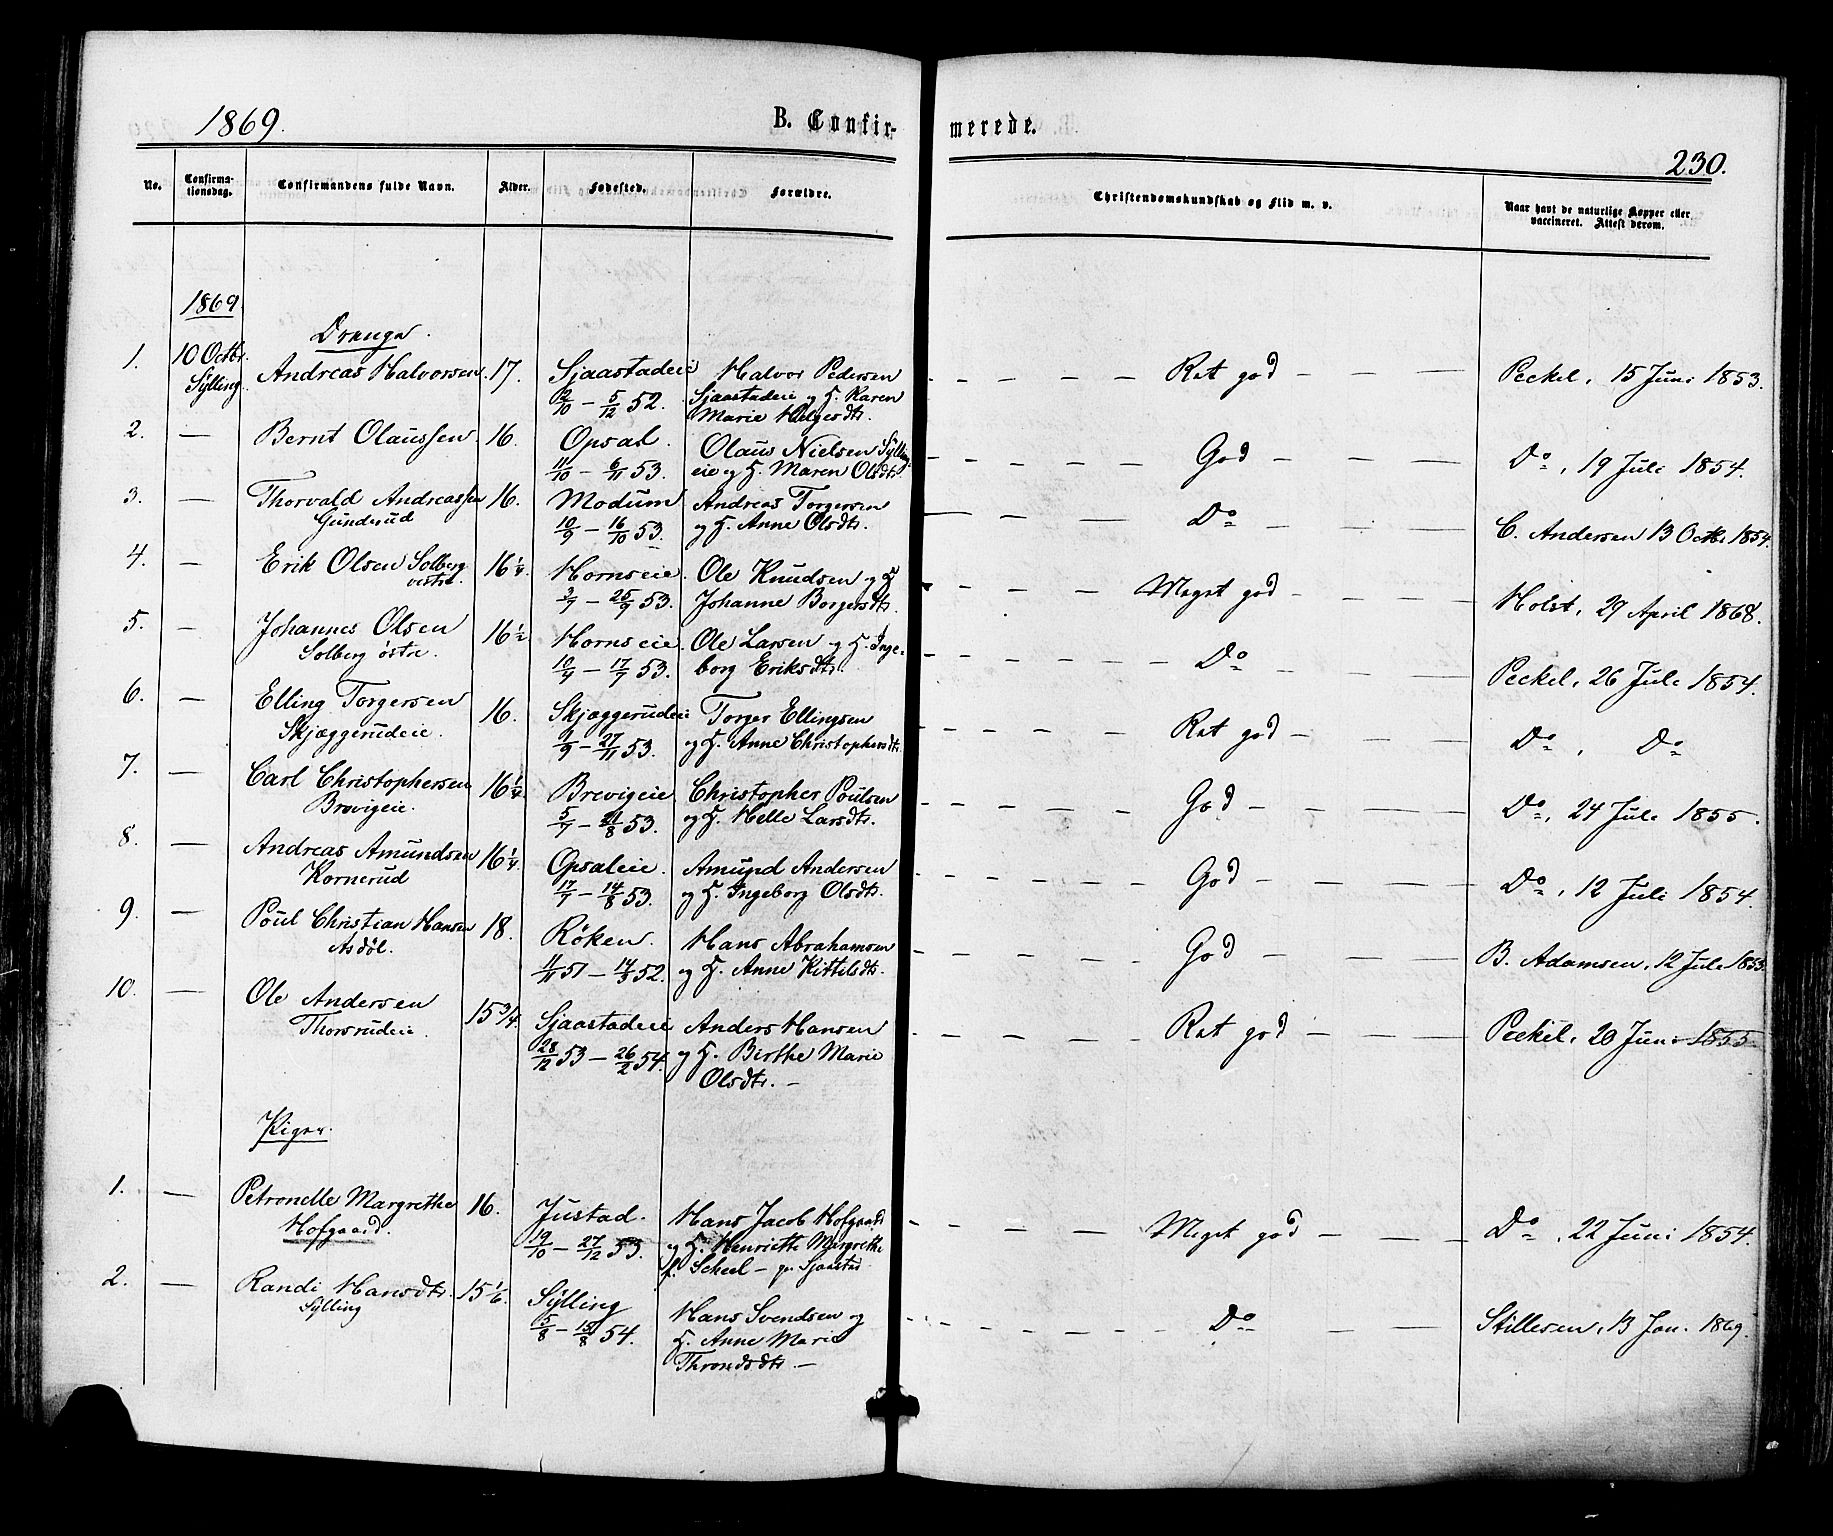 1869.
B. Confirmerede.
230.
No.
Confirmationsdag.
Confirmandens fulde Navn.
Alder.
Fødested.
Forældre.
Christendomskundskab og Flid m. v.
Naar havt de naturlige Kopper eller vaccineret. Attest derom.
1869.
Drenge.
1. 10 Octbr. Sylling Andreas Halvorsen. 17. Sjaastadeie Halvor Pedersen — — — Ret god — — — Peckel, 15 Juni 1853.
2/10 – 5/12 52. Sjaastadeie og H. Karen
Marie Helgesdtr.
2. — Bernt Olaussen 16. Opsal. Olaus Nielsen Sylling- — — — God — — — Do, 19 Juli 1854.
11/10 – 6/11 53. eie og H. Maren Olsdtr.
3. — Thorvald Andreassen 16. Modum Andreas Torgersen — — — Do — — — C. Andersen 13 Octbr 1854.
Gunderud 10/9 – 16/10 53. og H. Anne Olsdtr.
4. — Erik Olsen Solberg 16 1/4. Hornseie. Ole Knudsen og H — — — Meget god — — — Holst, 29 April 1868.
vestre. 3/7 – 25/9 53. Johanne Borgersdtr.
5. — Johannes Olsen 16 1/2 Hornseie. Ole Larsen og H. Inge- — — — Do — — — Peckel, 26 Juli 1854.
Solberg østre. 10/4 – 17/7 53. borg Eriksdtr.
6. — Elling Torgersen 16. Skjæggerudeie Torger Ellingsen — — — Ret god — — — Do, Do
Skjæggerudeie. 1/9 – 27/11 53. og H. Anne Christophersdtr.
7. — Carl Christophersen 16 1/4. Brevigeie Christopher Poulsen — — — God — — — Do, 24 Juli 1855.
Brevigeie. 5/7 – 21/8 53. og H. Helle Larsdtr.
8. — Andreas Amundsen 16 1/4. Opsaleie. Amund Andersen — — — God — — — Do, 12 Juli 1854.
Kornerud 17/7 – 14/8 53. og H. Ingeborg Olsdtr.
9. — Poul Christian Hansen 18. Røken. Hans Abrahamsen — — — God — — — B. Adamsen, 12 Juli 1853.
Asdøl. 11/11 51 – 14/3 52. og H. Anne Kittilsdtr.
10. — Ole Andersen 15 3/4. Sjaastadeie Anders Hansen — — — Ret god — — — Peckel, 20 Juni 1855
Thorsrudeie. 28/12 53 – 26/2 54. og H. Birthe Marie
Olsdtr. —
Piger.
1. — Petronelle Margrethe 16. Justad. Hans Jacob Hofgaard — — — Meget god — — — Do, 22 Juni 1854.
Hofgaard. 19/10 – 27/12 53. og H. Henriette Margrethe
f. Scheel — pr Sjaastad
2. — Randi Hansdtr. 15 1/6. Sylling Hans Svendsen og — — — Do — — — Stillesen, 13 Jan. 1869.
Sylling 5/8 – 15/8 54. H. Anne Marie
Throndsdtr. —